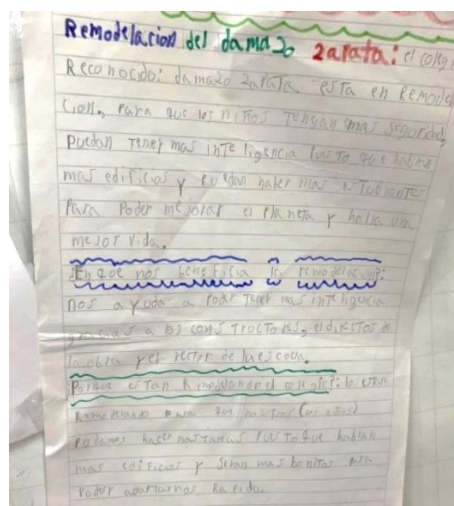 Remodelacion del damazo zapata: el coleg
Reconocido: damazo zapata esta en Remode
cion, Para que los niños tengan mas seguridad,
Puedan tener mas inteligencia Puesto que habran
mas edificios y Puedan haber mas estudiantes
Para Poder mejorar el Planeta y halla una
mejor vida.
En que nos beneficia la remodelacion?:
nos ayuda a Poder tener mas inteligencia
gracias a los constructores, el director de
la obra y el rector de la escuela.
Porque estan Remodelando el colegio?: lo estan
Remodelando Para que nosotros (los niños)
Podamos hacer mas Puesto que habran
mas edificios y seran mas bonitos Para
Poder adaptarnos Rapido.